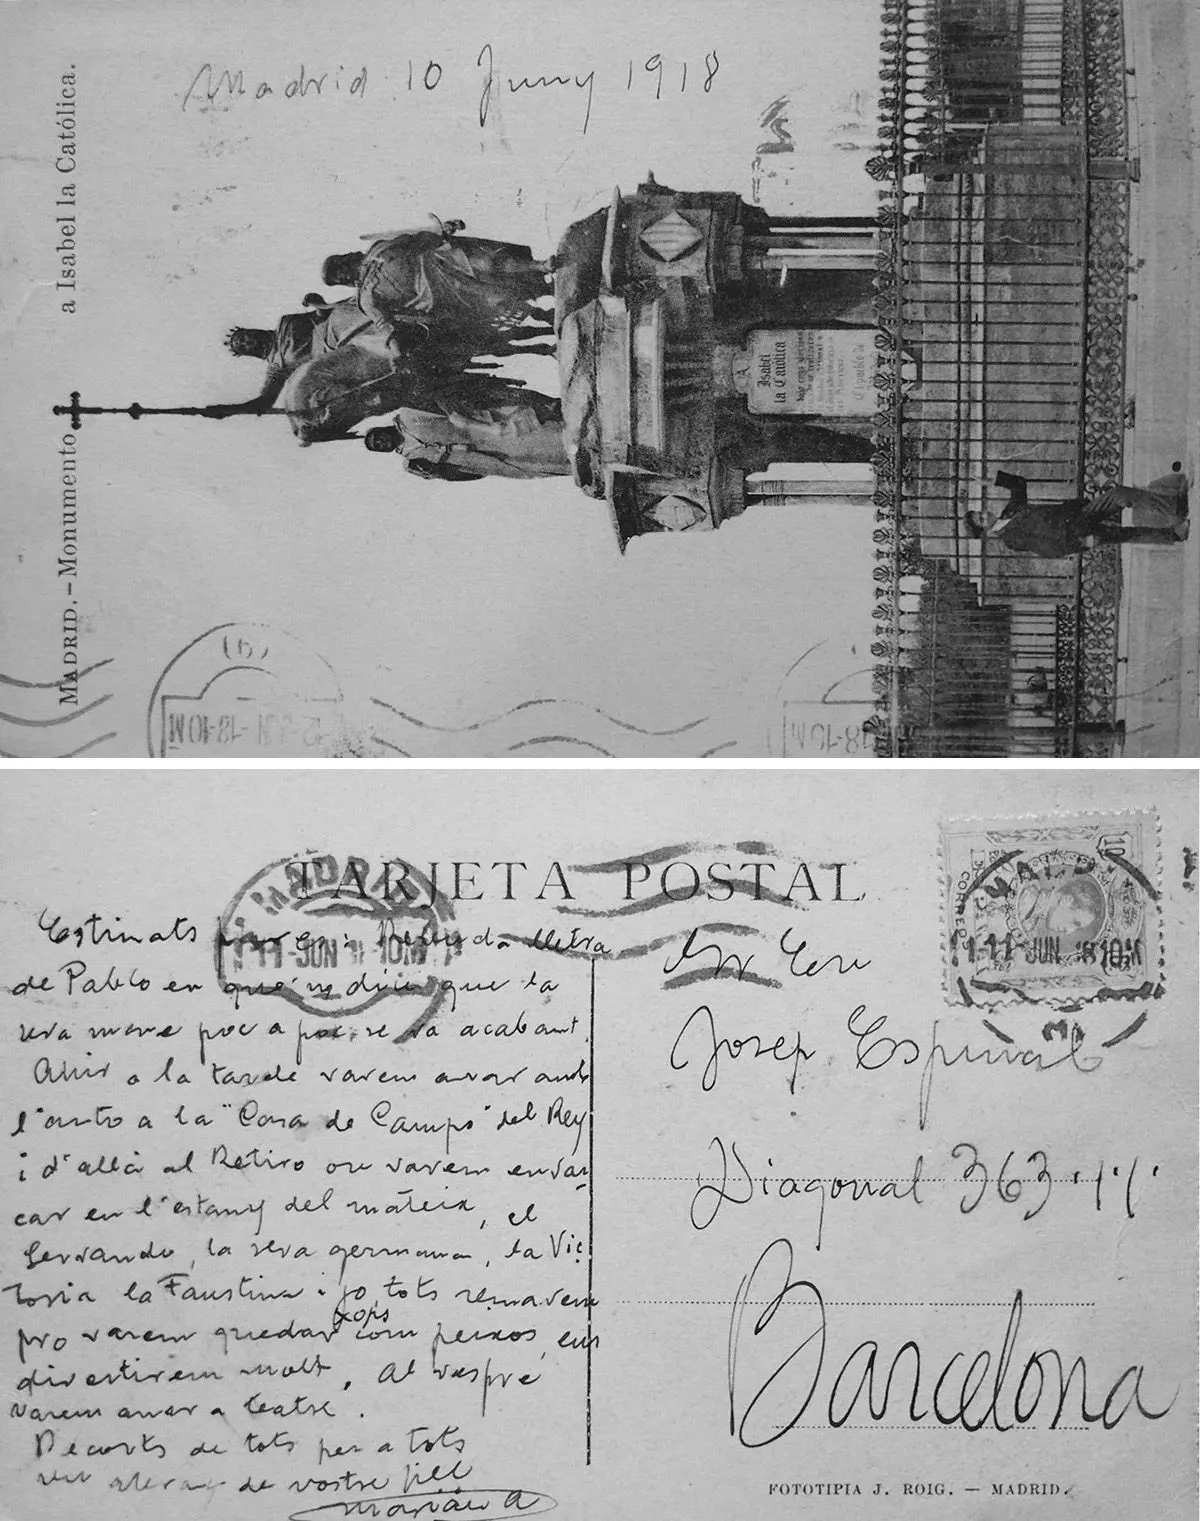 Madrid 10 Juny 1918
MADRID.-Monumento a Isabel la Católica.
A
Isabel
la Católica
TARJETA POSTAL
CORREOS
11-JUN 10M
11 JUN 18 10M
Estimats Rebuda lletra
de Pablo en que'ns diu que la
seva mare poc a poc se va acabant.
Ahir a la tarde varem anar amb
l'auto a la "Casa de Campo" del Rey
i d'allà al Retiro on varem embar
car en l'estany del mateix, el
Servando, la seva germana, la Vic
toria la Faustina i jo, tots remavem
pro varem quedar xops com peixos, ens
divertirem molt. Al vespre
varem anar a teatre.
Recorts de tots per a tots
de vostre fill
Marián A
Sr En
Josep Espinal
Diagonal 363
Barcelona
FOTOTIPIA J. ROIG. — MADRID.